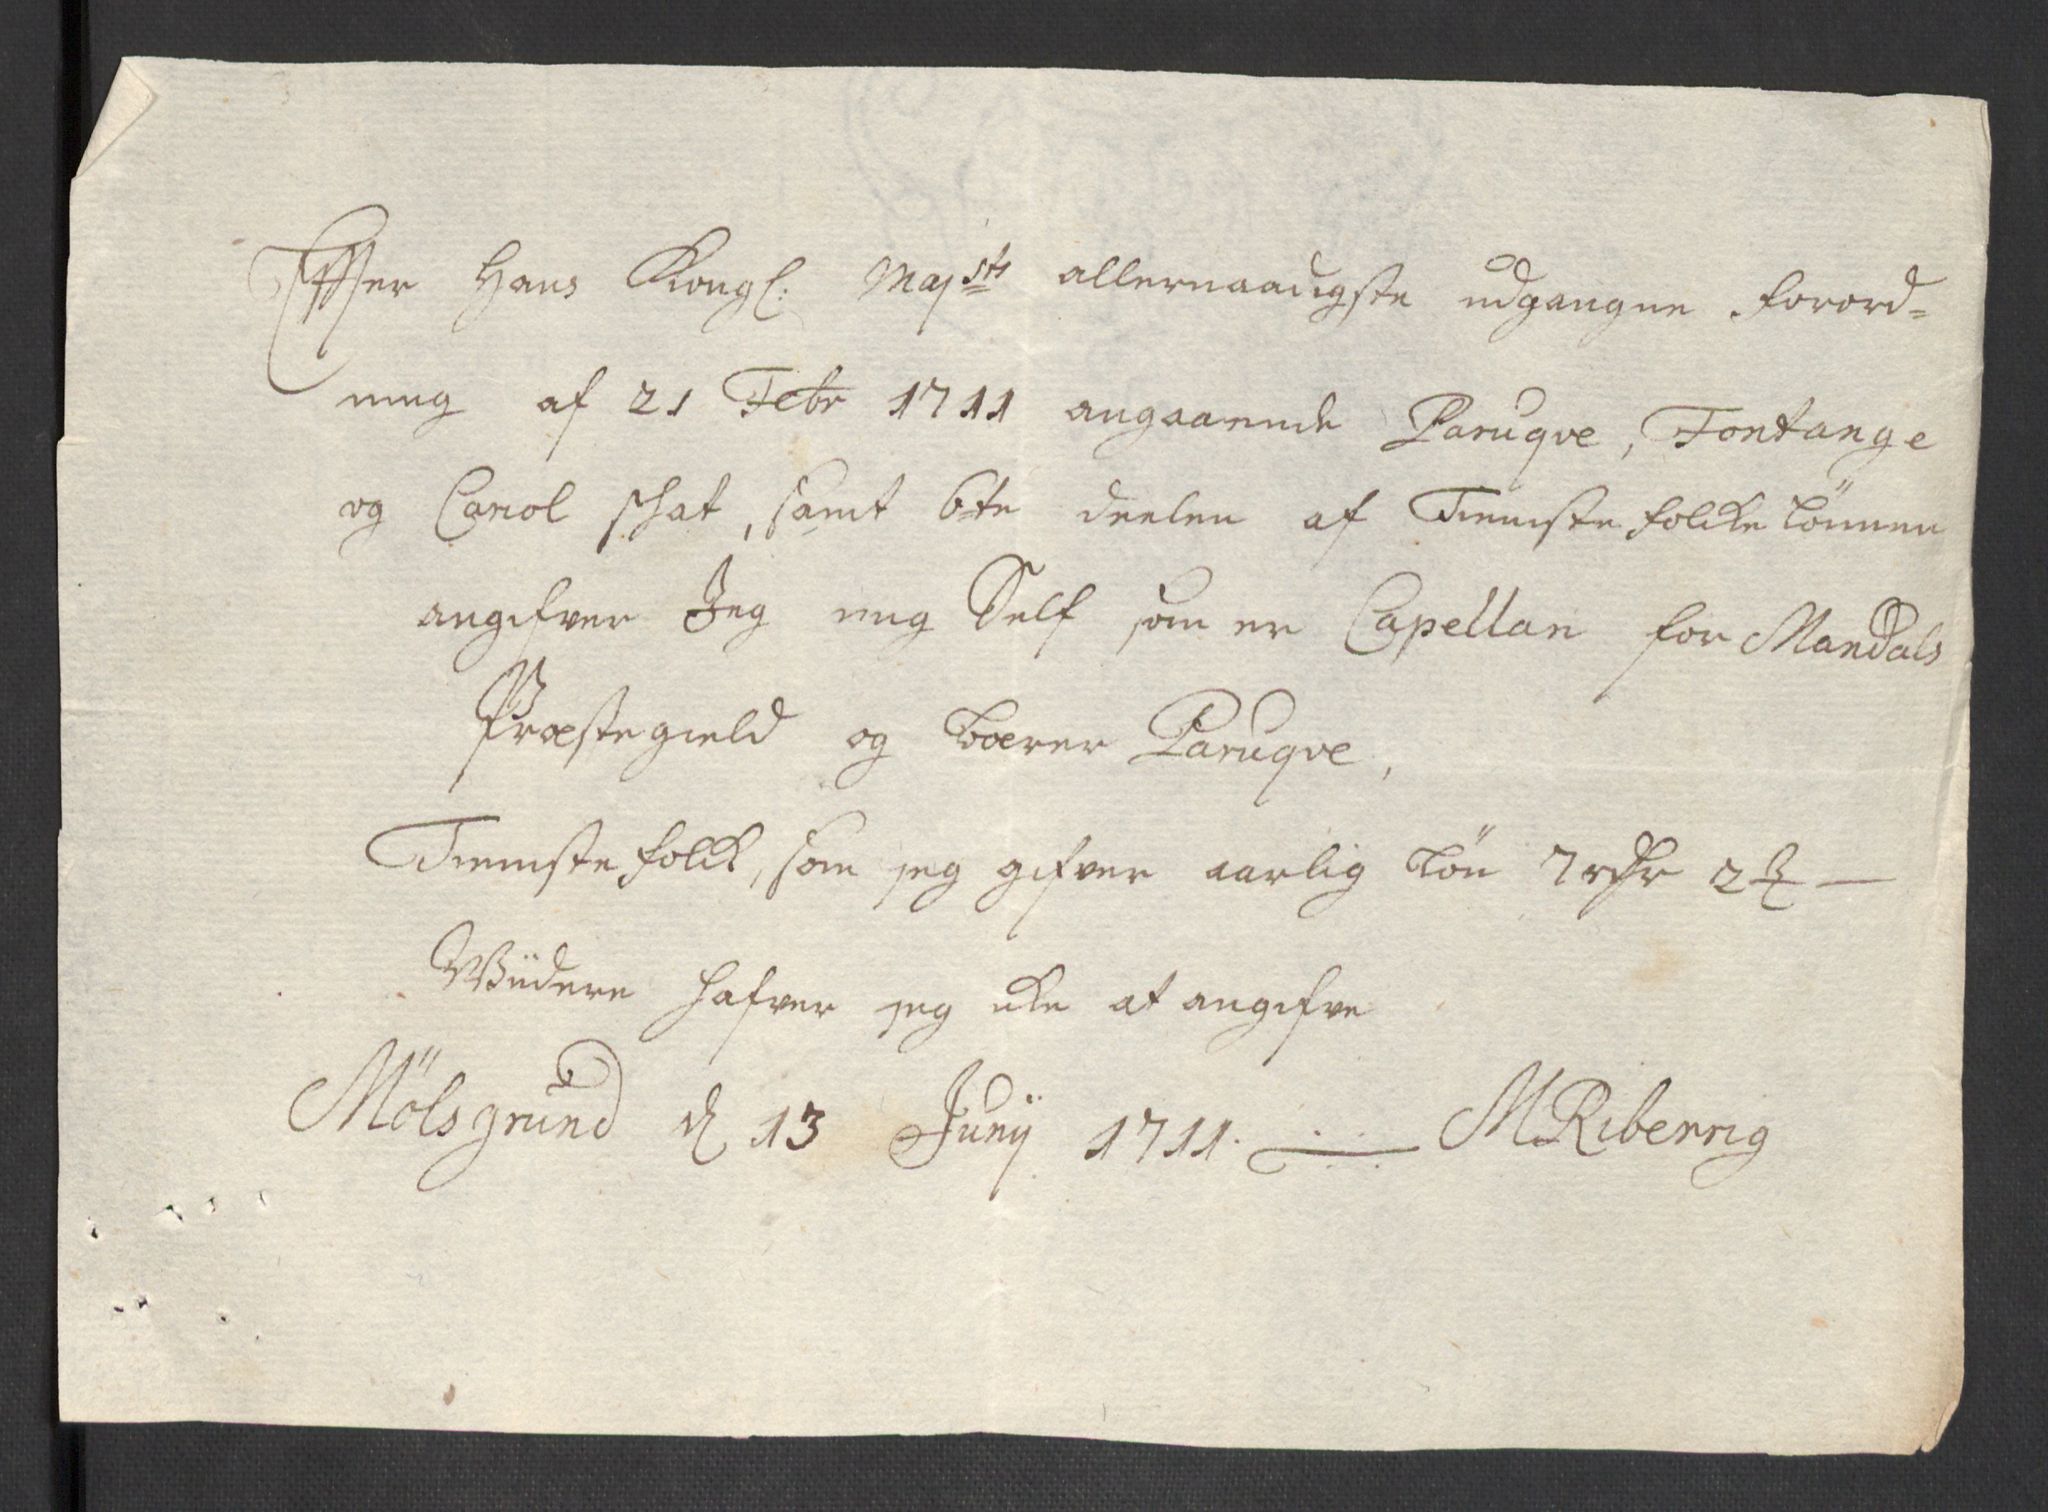 Effter Hans Kongl: Maj.sts allernaadigste udgangne forord=
ning af 21 Febr 1711 angaaende Paruqve, Fontange
og Cariol schat, samt 6te deelen af Tienistefolckelönnen
angifver Jeg mig Self som er Capellan for Mandals
Præstegield og bærer Paruqve,
Tieniste folck, som jeg gifver aarlig Lön 7 rdr 2 ℔ —
Wiidere hafver jeg icke at angifve
Mölsgrund d 13 Junij 1711. — M Riberrig